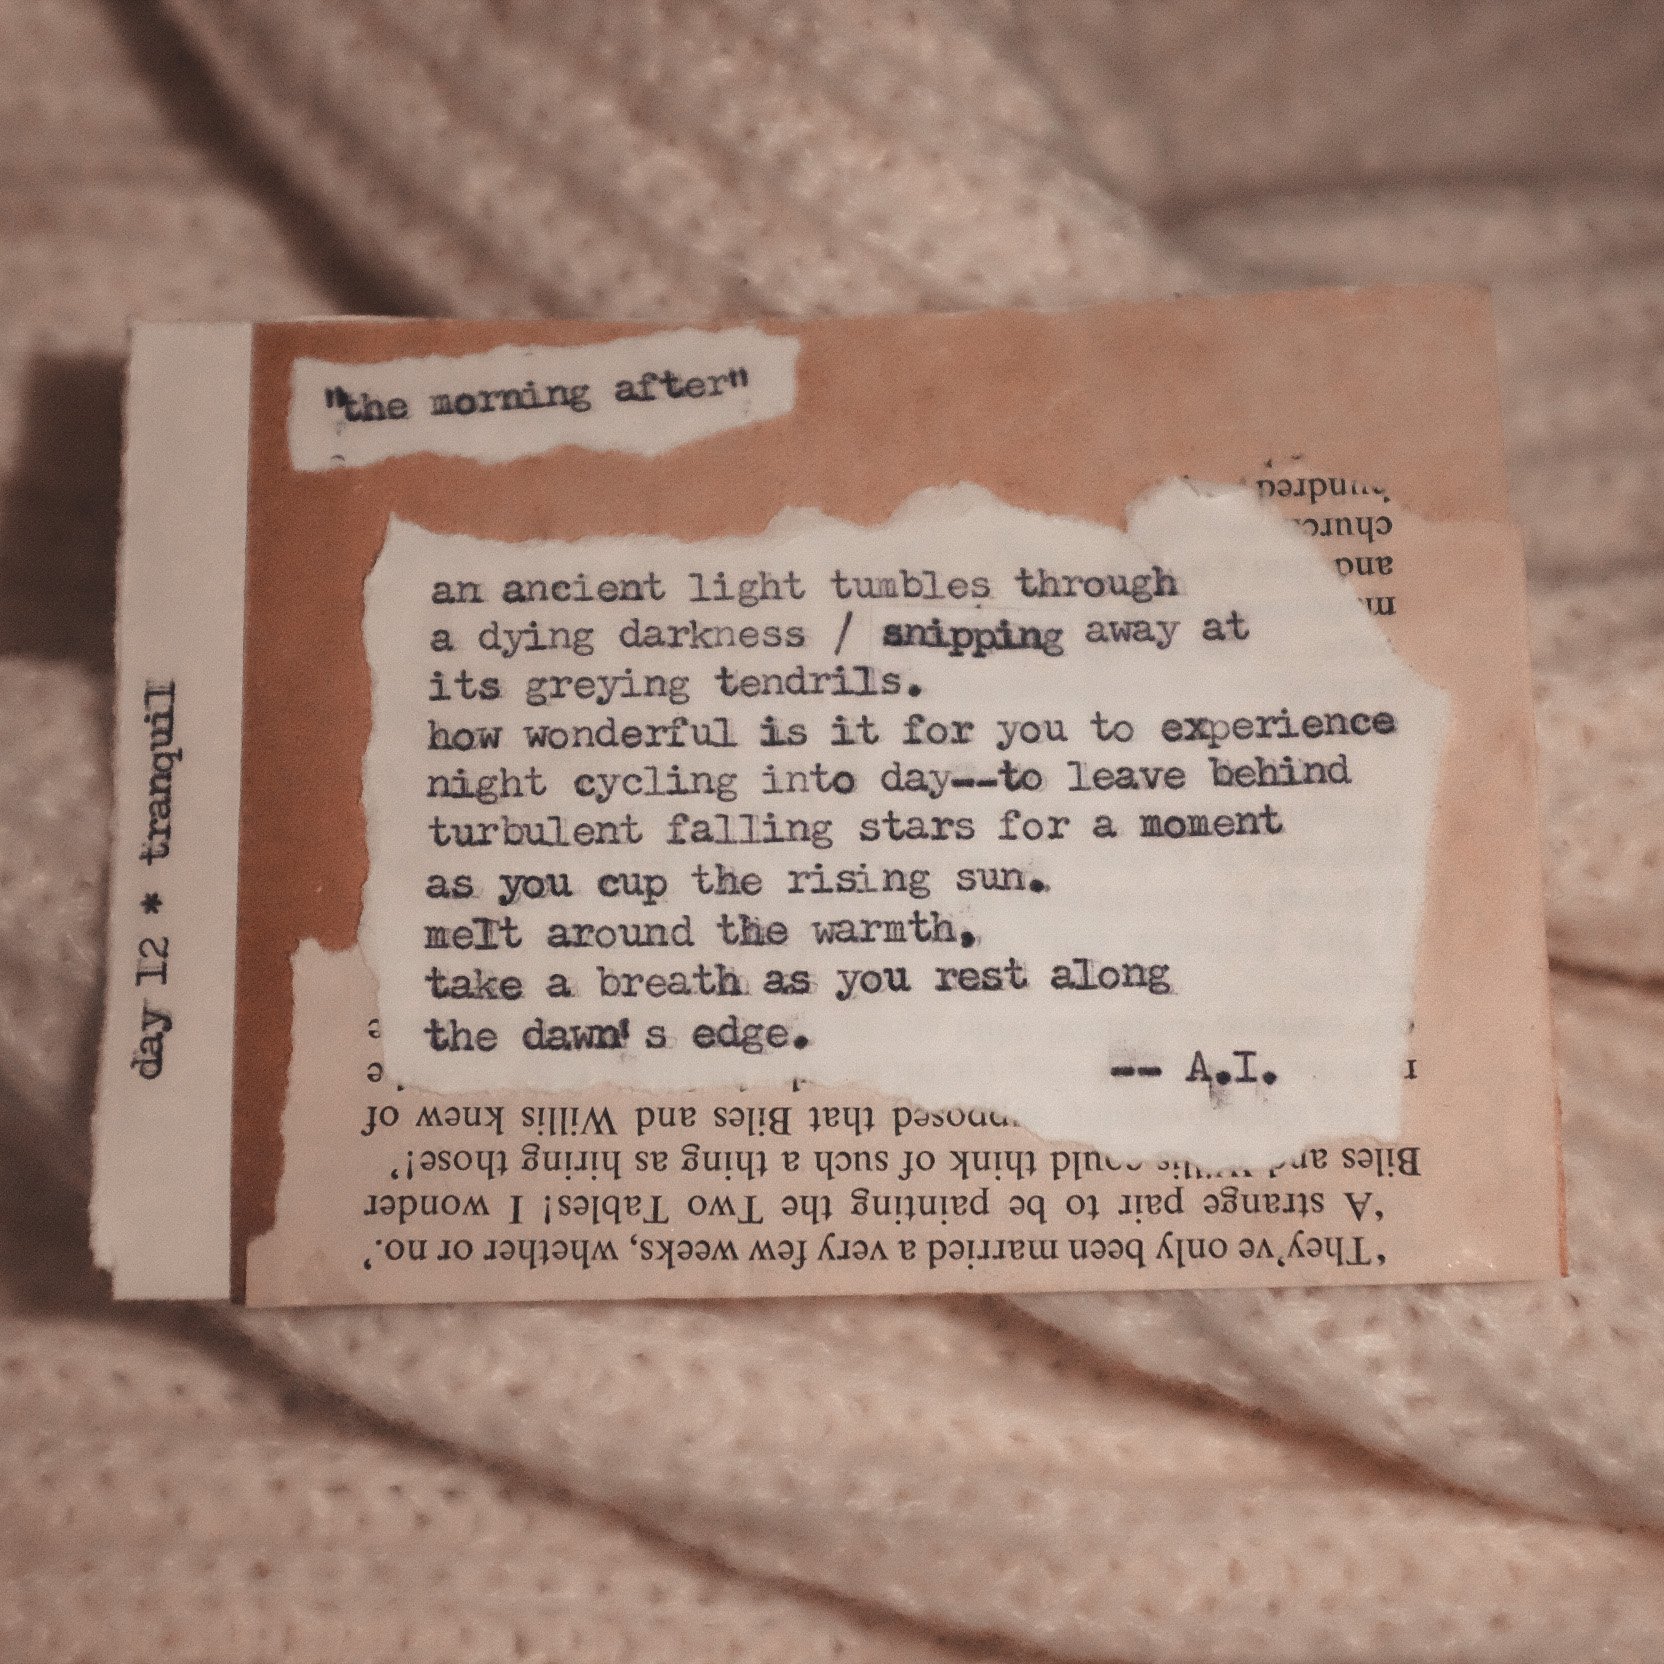 "the morning after"
an ancient light tumbles through
a dying darkness / snipping away at
its greying tendrils.
how wonderful is it for you to experience
night cycling into day--to leave behind
turbulent falling stars for a moment
as you cup the rising sun.
melt around the warmth,
take a breath as you rest along
the dawn's edge.
-- A.I.
day 12 * tranquil
'They've only been married a very few weeks, whether or no.'
'A strange pair to be painting the Two Tables! I wonder
Biles and Willis could think of such a thing as hiring those!'
that Biles and Willis knew of
and